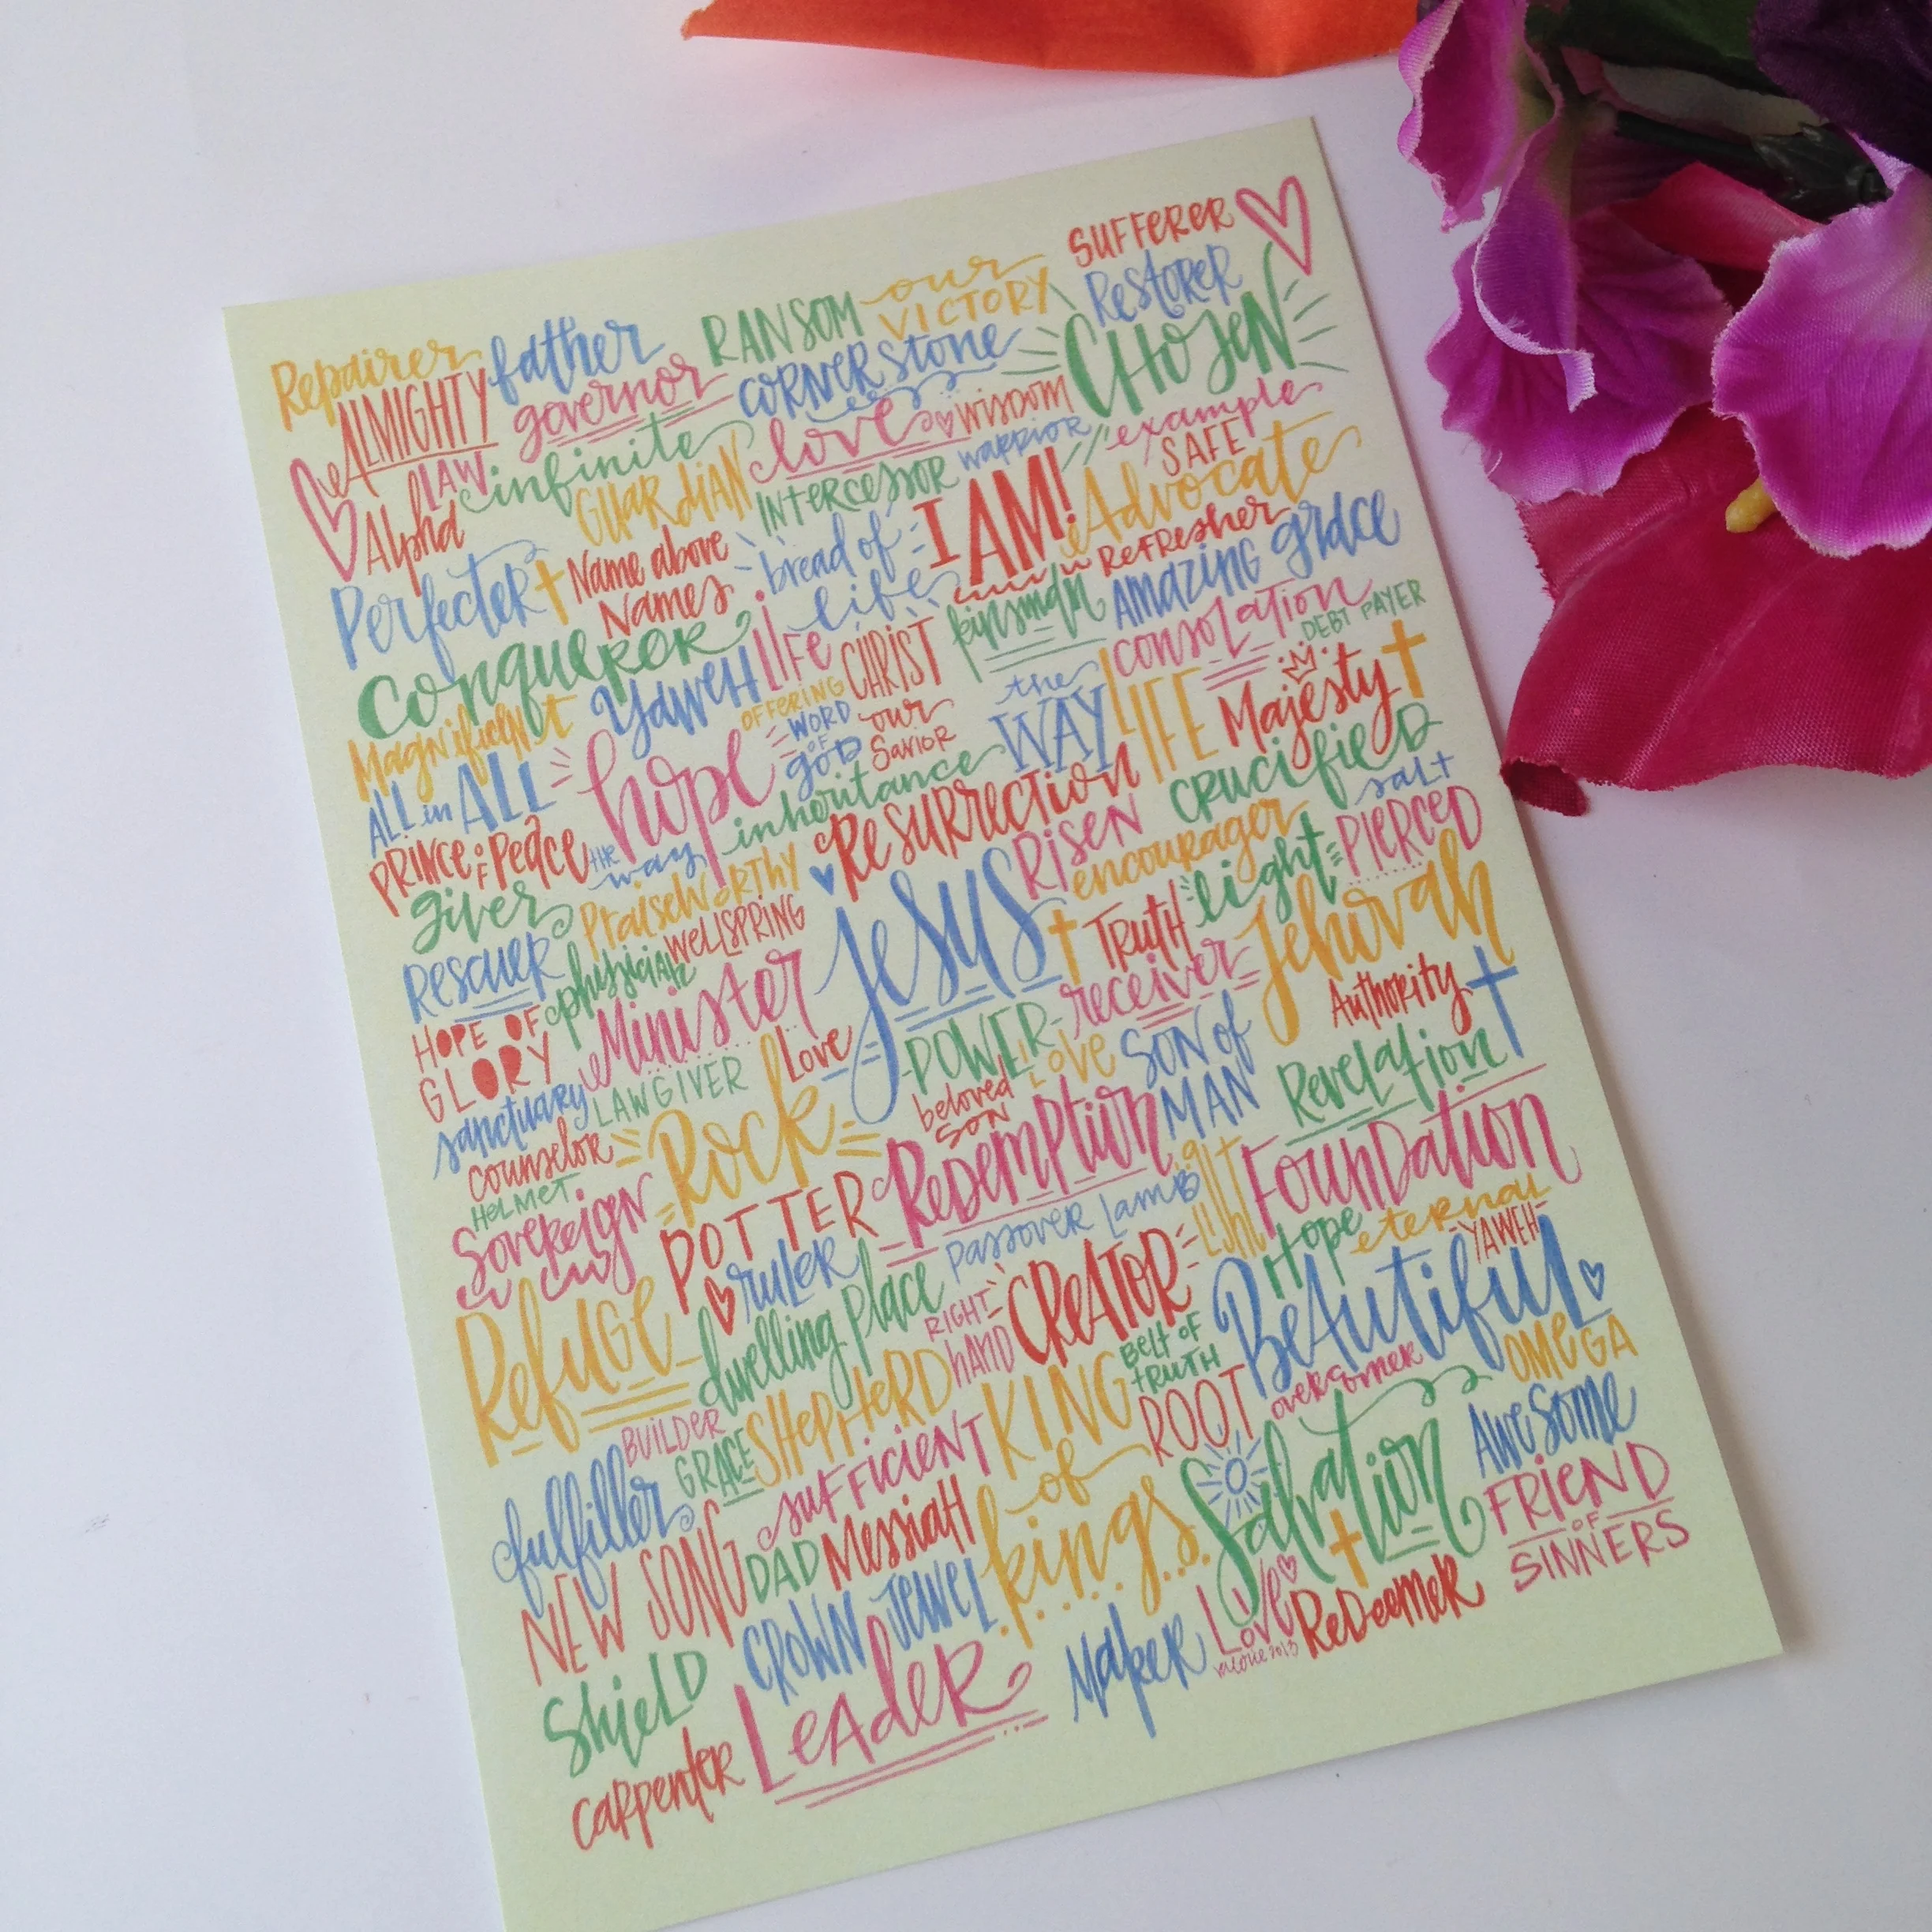 SUFFERER
Repairer father RANSOM our VICTORY RESTORER
ALMIGHTY governor CORNERSTONE CHOSEN
LAW infinite love wisdom example
Alpha GUARDIAN INTERCESSOR warrior SAFE
Perfecter Name above Names bread of life I AM! Advocate
REFRESHER
Conqueror LIFE CHRIST kinsman AMAZING grace
Magnificent YAWEH OFFERING consolation DEBT PAYER
ALL in ALL hope WORD OF GOD our Savior the WAY LIFE Majesty
PRINCE OF Peace THE way inheritance RESURRECTION CRUCIFIED salt
giver PraiseWorthy RISEN encourager light PIERCED
RESCUER physician WELLSPRING JESUS Truth Jehovah
HOPE OF GLORY Minister receiver Authority
sanctuary LAWGIVER Love POWER LOVE SON of MAN Revelation
counselor ROCK beloved SON
HELMET
Sovereign POTTER Redemption Light Foundation
ruler Passover Lamb Hope eternal YAWEH
Refuge dwelling place RIGHT HAND CREATOR Beautiful
BUILDER SHEPHERD BELT OF TRUTH overcomer OMEGA
fulfiller GRACE sufficient KING of kings ROOT Salvation AWESOME
NEW SONG DAD MESSIAH FRIEND OF SINNERS
Shield CROWN JEWEL Maker Love REDEEMER
carpenter LEADER